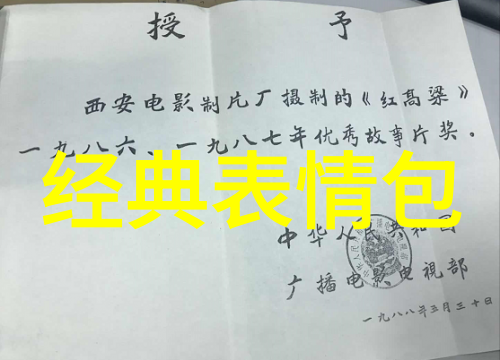 授予
西安电影制片厂摄制的《红高梁》
一九八六、一九八七年优秀故事片奖。
经典表情包
中华人民共和国
广播电影电视部
一九八八年三月三十日